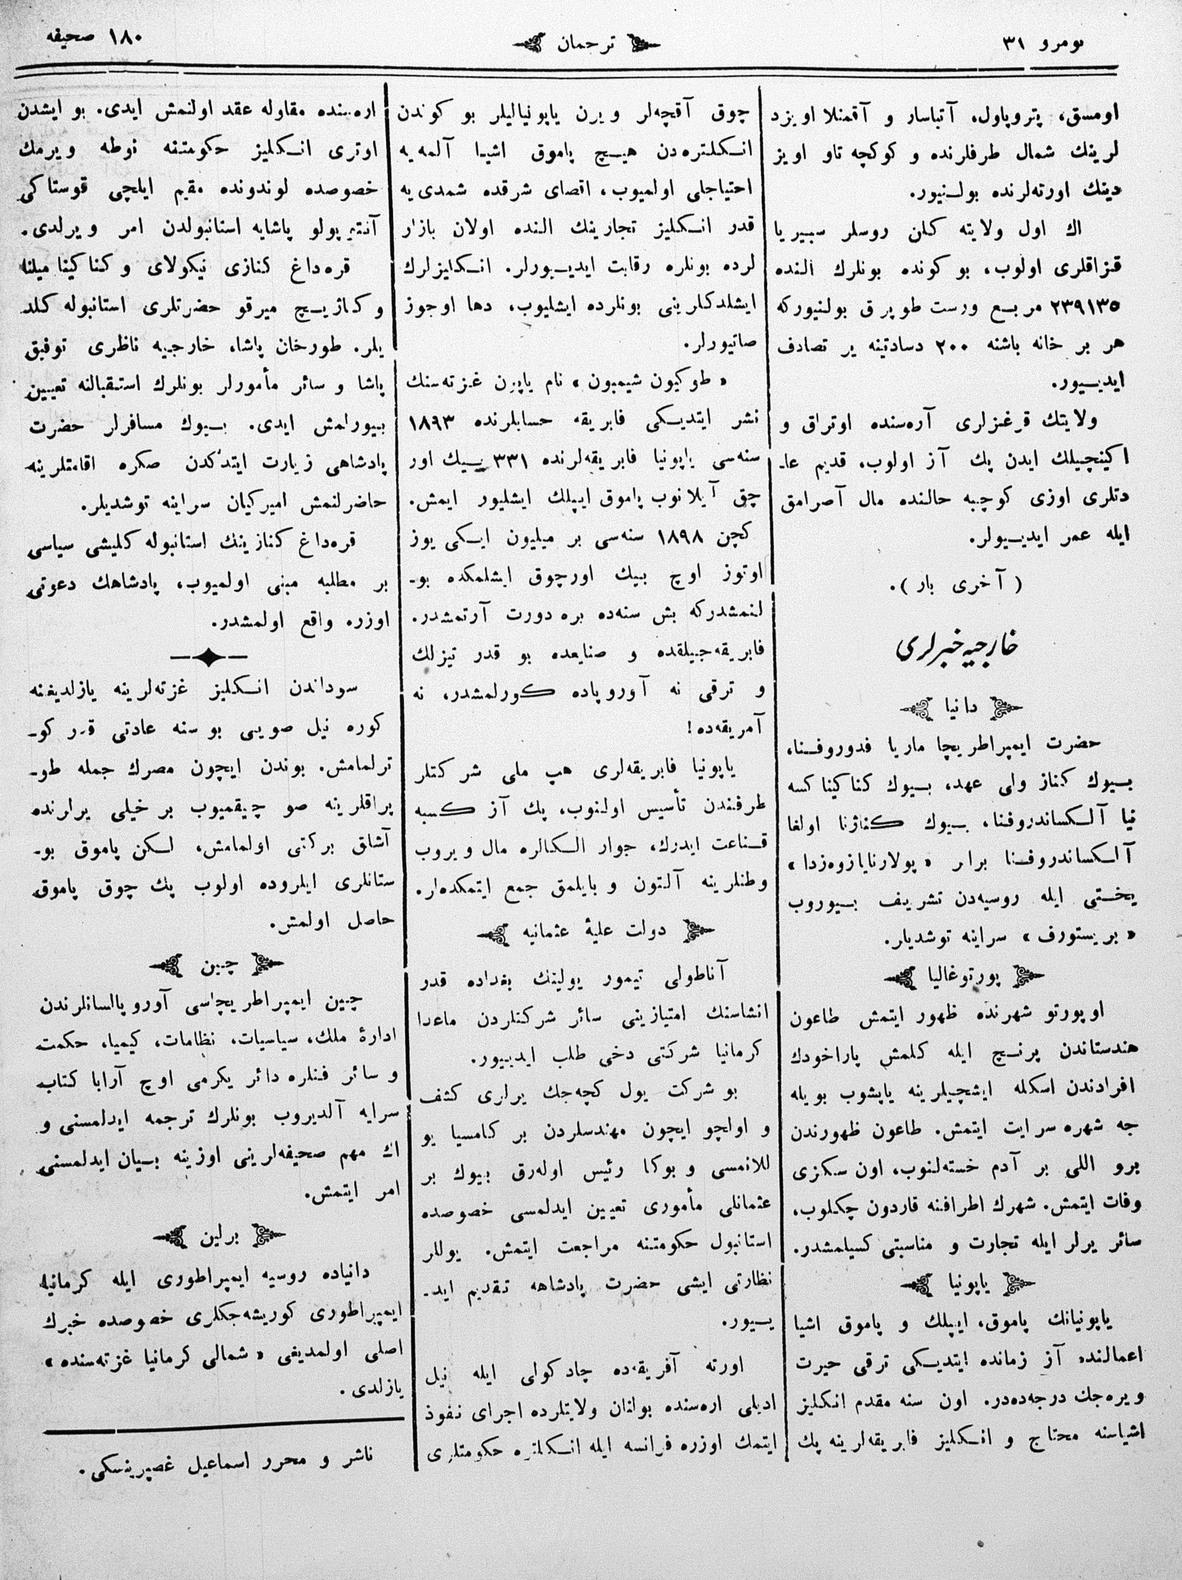 نومرو ٣١
ترجمان
١٨٠ صحیفه
اومسق، پتروپاول، آتباسار و آقمنلا اویزد
لرینك شمال طرفلرنده و كوكچه تاو اویز
دینك اورته‌لرنده بولـنیور.
اك اول ولایته كلن روسلر سبیریا
قـزاقلری اولوب، بو كونده بونلرك النده
٢٣٩١٣٥ مربـع ورست طوپرق بولنیوركه
هر بر خانه باشنه ٢٠٠ دسادتینه یر تصادف
ایدیـیور.
ولایتك قرغزلری آره‌سنده اوتراق و
اكینچیلك ایدن پك آز اولوب، قدیم عا-
دتلری اوزی كوچبه حالنده مال آصرامق
ایله عمر ایدیـیولر.
( آخری بار ).
خارجیه خبرلری
دانیا
حضرت ایمپراطریچا ماریا فدوروفـنا،
بـیوك كناز ولی عهد، بـیوك كناكینا كسه
نیا آلـكساندروفنا، بـیوك كنازنا اولغا
آالـكساندروفـنا برابر « پولارنایازوه‌زدا »
یخـتی ایله روسیه‌دن تشریـف بـیوروب
« بریستورف » سراینه توشدیلر.
پورتوغالیا
اوپورتو شهرنده ظهور ایتمش طاعون
هندستاندن پرنـج ایله كلمش پاراخودك
افرادندن اسكله ایشچیلرینه یاپشوب بویله
جه شهره سرایت ایتمش. طاعون ظهورندن
برو اللی بر آدم خسته‌لنوب، اون سكزی
وفات ایتمش. شهرك اطرافـنه قاردون چكلوب،
سائر یرلر ایله تجارت و مناسبتی كسیلمشدر.
یاپونیا
یاپونیانك پاموق، ایپلك و پاموق اشیا
اعمالنده آز زمانده ایتدیـكی ترقی حیرت
ویره‌جك درجه‌ده‌در. اون سنه مقدم انكلیز
اشیاسنه محتاج و انـكلیز فابریقه‌لرینه پك
چوق آقچه‌لر ویرن یاپونیالیلر بو كوندن
انـكلتره‌دن هیـچ پاموق اشیا آلمه‌یه
احتیاجلی اولمیوب، اقصای شرقده شمدی‌یه
قدر انـكلیز تجارینك النده اولان بازار
لرده بونلره رقابت ایدیـیورلر. انـكلیزلرك
ایشلدكلرینی بونلرده ایشلیوب، دها اوجوز
صاتیورلر.
« طوكیون شیمبون » نام یاپون غزته‌سنك
نشر ایتدیـكی فابریقه حسابلرنده ١٨٩٣
سنه‌سی یاپونیا فابریقه‌لرنده ٣٣١ بیـك اور
چق آیلانوب پاموق ایپلك ایشلیور ایمش.
كچن ١٨٩٨ سنه‌سی بر میلیون ایـكی یوز
اوتوز اوچ بیـك اورچوق ایشلمكده بو-
لنمشدركه بش سنه‌ده بره دورت آرتمشدر.
فابریقه‌جیلقده و صنایعده بو قدر تیزلك
و ترقی نه آوروپاده كورلمشدر، نه
آمریقه‌ده!
یاپونیا فابریقه‌لری هپ ملی شركتلر
طرفـندن تأسیس اولنوب، پك آز كـسبه
قـناعت ایدرك، جوار الـكـالره مال ویروب
وطنلرینه آلتون و بایلمق جمع ایتمكده‌لر.
دولت علیۀ عثمانیه
آناطولی تیمور یولینك بغداده قدر
انشاسنك امتیازینی سائر شركتلردن ماعدا
كرمانیا شركتی دخی طلب ایدیـیور.
بو شركت یول كچه‌جك یرلری كشف
و اولچو ایچون مهندسلردن بر كامسیا یو
للانمسی و بوكا رئیس اوله‌رق بیوك بر
عثمانلی مأموری تعیین ایدلمسی خصوصده
استانبول حكومتـنه مراجعت ایتمش. یوللر
نظارتی ایشی حضرت پادشاهه تـقدیم اید-
یـیور.
اورته آفریقه‌ده چادكولی ایله نیل
ادیلی اره‌سنده بولنان ولایتلرده اجرای نـفوذ
ایتمك اوزره فرانسه ایله انـكلتره حكومتلری
اره‌سنده مقاوله عقد اولنمش ایدی. بو ایشدن
اوتری انـكلیز حكومتـنه نوطه ویرمك
خصوصده لوندونده مقیم ایلچی قوستاكی
آنتپولو پاشایه استانبولدن امر ویرلدی.
قره‌داغ كنازی نیكولای و كناكینا میلنا
و كنازیـچ میرقو حضرتلری استانبوله كلد
یلر. طورخان پاشا، خارجیه ناظری توفیق
پاشا و سائر مأمورلر بونلرك استـقبالنه تعیین
بیورلمش ایدی. بـیوك مسافرلر حضرت
پادشاهی زیارت ایتدكدن صكره اقامتلرینه
حاضرلنمش امیركیان سراینه توشدیلر.
قره‌داغ كنازینك استانبوله كلیشی سیاسی
بر مطلبه مبنی اولمیوب، پادشاهك دعوتی
اوزره واقع اولمشدر.
سوداندن انـكلیز غزته‌لرینه یازلدیغنه
كوره نیل صویی بو سنه عادتی قدر كو-
ترلمامش. بوندن ایچون مصرك جمله طو-
پراقلرینه صو چیقمیوب بر خیلی یرلرنده
آشلق بركتی اولمامش، لـكن پاموق بو-
ستانلری ایلروده اولوب پك چوق پاموق
حاصل اولمش.
چین
چین ایمپراطریچاسی آوروپا لسانلرندن
ادارۀ ملك، سیاسیات، نظامات، كیمیا، حكمت
و سائر فـنلره دائر یكرمی اوچ آرابا كتاب
سرایه آلدیروب بونلرك ترجمه ایدلمسنی و
اك مهم صحیفه‌لرینی اوزینه بـیان ایدلمسنی
امر ایتمش.
برلین
دانیاده روسیه ایمپراطوری ایله كرمانیا
ایمپراطوری كوریشه‌جكلری خصوصده خبرك
اصلی اولمدیغی « شمالی كرمانیا غزته‌سنده »
یازلدی.
ناشر و محرر اسماعیل غصپرینسكی.